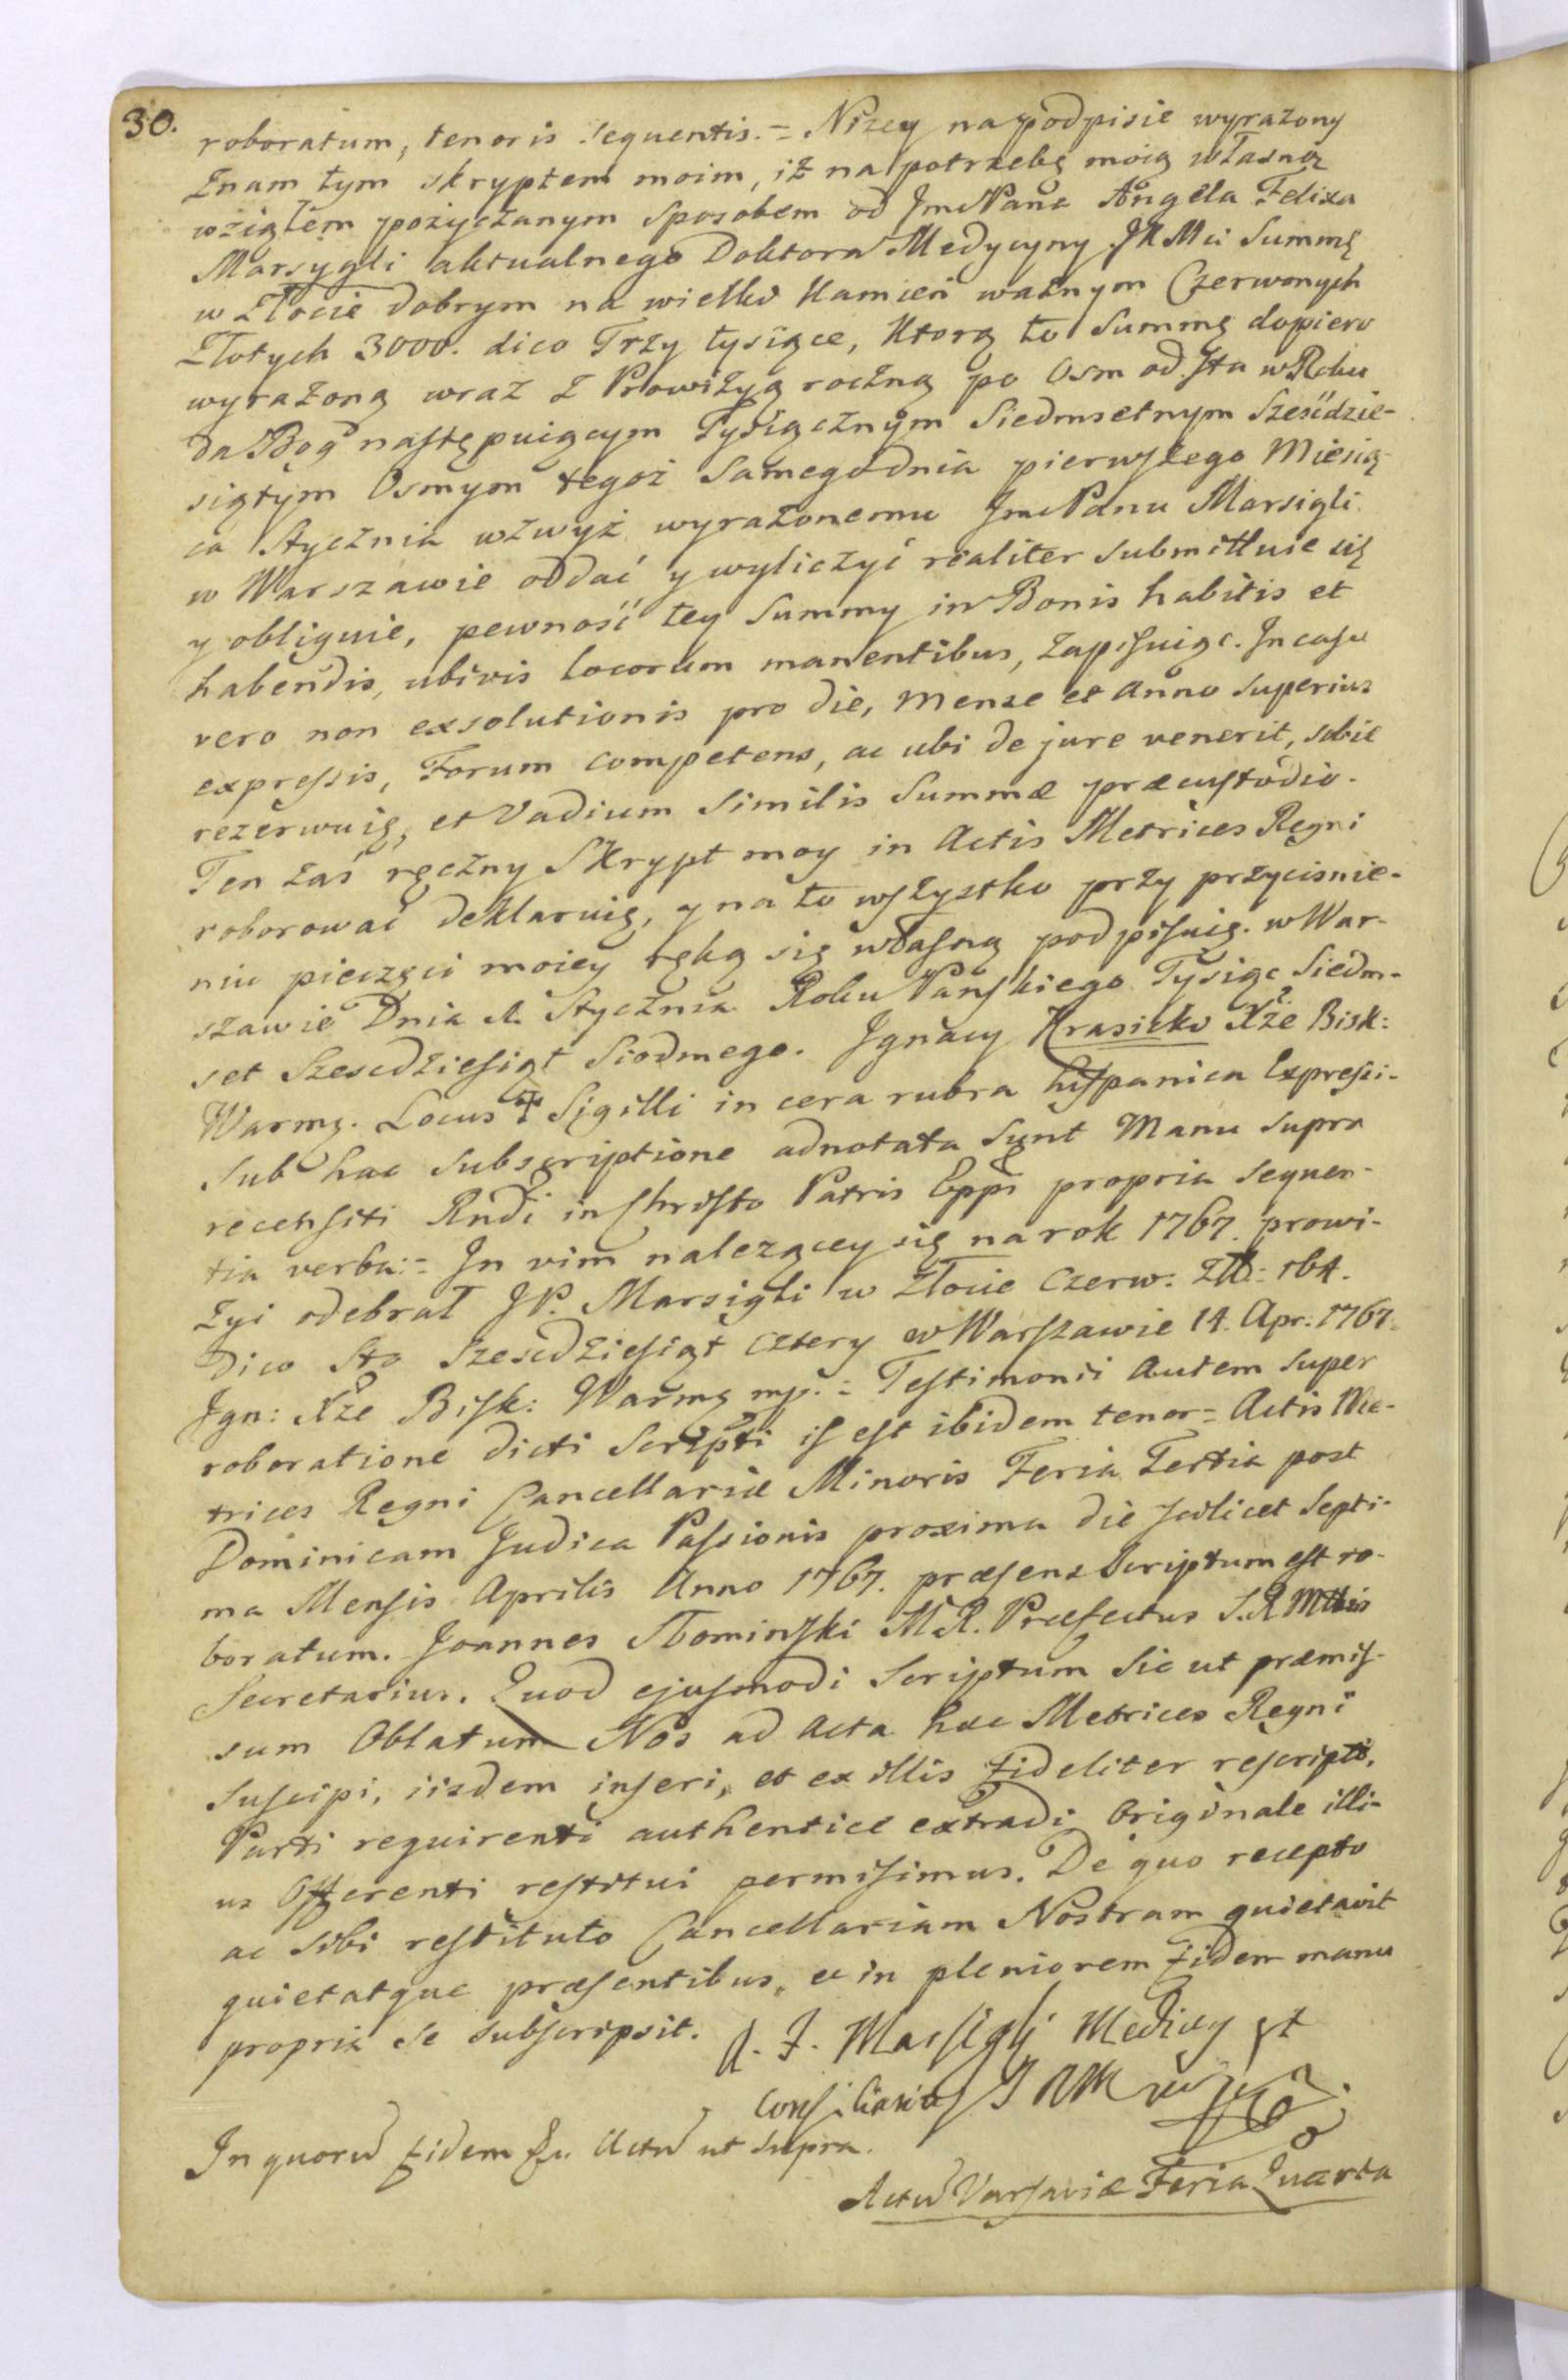 30.
roboratum, tenoris sequentis. = Nizey na podpisie wyrazony
Znam tym skryptem moim, iż na potrzebę moię własną
wziąłem pożyczanym sposobem od JmcPana Angela Felixa
Marsygli aktualnego Doktora Medycyny JKMci Summę
w Złocie dobrym na wielko Kamień ważnym Czerwonych
Złotych 3000. dico Trzy tysiące, Ktorą to Summę dopiero
wyrażoną wraz z Prowizyą roczną po Osm od Sta w Roku
da Bog następuiącym Tysiącznym Siedmsetnym Sześćdzie-
siątym Osmym tegoż Samego dnia pierwszego Miesią-
ca Stycznia wzwyż wyrażonemu JmcPanu Marsigli
w Warszawie oddać y wyliczyć realiter submittuie się
y obliguie, pewność tey Summy in Bonis habitis et
habendis, ubivis locorum manentibus, zapisuiąc. In casu
vero non exsolutionis pro die, mense et anno superius
expressis, Forum competens, ac ubi de jure venerit, sobie
rezerwuię, et Vadium similis Summæ præcustodio.
Ten zaś ręczny Skrypt moy in Actis Metrices Regni
roborować deklaruię, y na to wszystko przy przycisnie-
niu pieczęci moiey ręką się własną podpisuię. w War-
szawie Dnia 1. Stycznia Roku Pańskiego Tysiąc Siedm-
set Szescdziesiąt Siodmego. Jgnacy Krasicki Xże Bisk:
Warmg. Locus ✝ Sigilli in cera rubra hispanica Expressi.
Sub hac subscriptione adnotata sunt Manu supra
recensiti Rndi in Christo Patris Eppi propria sequen-
tia verba: = In vim nalezącey się na rok 1767. prowi-
zyi odebrał JP. Marsigli w Złocie Czerw: Złł: 164.
dico Sto Szescdziesiąt cztery w Warszawie 14. Apr: 1767.
Jgn: Xże Bisk: Warmg mp. = Testimonii autem super
roboratione dicti Scripti is est ibidem tenor = Actis Me-
trices Regni Cancellariæ Minoris Feria Tertia post
Dominicam Judica Passionis proxima die scilicet Septi-
ma Mensis Aprilis Anno 1767. præsens Scriptum est ro-
boratum. Joannes Słominski M.R. Præfectus S.R Mttis
Secretarius. Quod ejusmodi Scriptum sic ut præmis-
sum Oblatum Nos ad Acta hæc Metrices Regni
suscipi, iisdem inseri, et ex illis fideliter rescripti,
Parti requirenti authentice extradi Originale illi-
us Offerenti restitui permisimus. De quo recepto
ac sibi restituto Cancellariam Nostram quietavit
quietatque præsentibus, et in pleniorem fidem manu
propria se subscripsit. A. F. Marsiglj Medicy et
Consiliarius
In quorū fidem &c. Actū ut supra.
Actū Varsaviæ Feria Quarta